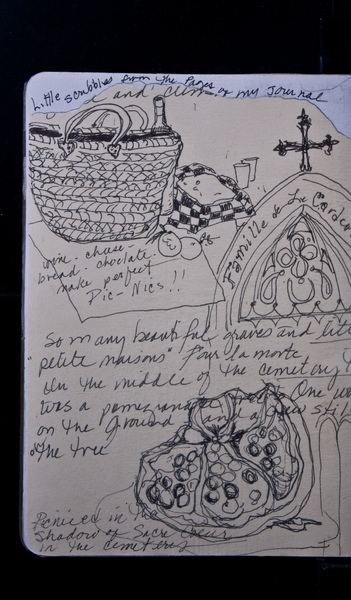 Little scribbles from the Pages of my Journal
and
wine - cheese -
bread - choclate -
make perfect
Pic-Nics!!
Famille de La
So many beautiful graves and
"petite maisons" Pour la morte
In the middle of the cemetery
was a pomegranate One
on the Ground and a few still
The tree
Picniced in the
Shadow of Sacre Coeur
in the cemetery